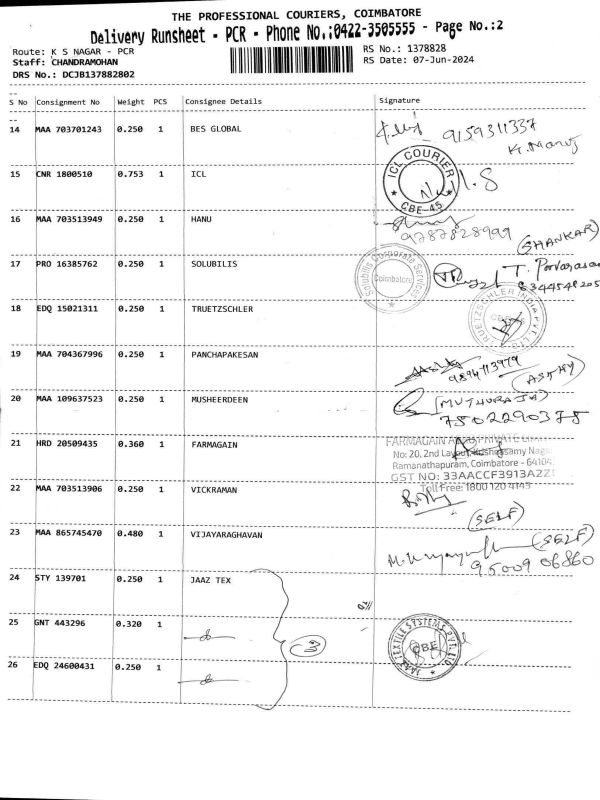 THE PROFESSIONAL COURIERS, COIMBATORE
Delivery Runsheet - PCR - Phone No.:0422-3505555 - Page No.:2
Route: K S NAGAR - PCR RS No.: 1378828
Staff: CHANDRAMOHAN RS Date: 07-Jun-2024
DRS No.: DCJB137882802
S No Consignment No Weight PCS Consignee Details Signature
14 MAA 703701243 0.250 1 BES GLOBAL 9159311337
K. Manoj
15 CNR 1800510 0.753 1 ICL
ICL COURIER
CBE-45
16 MAA 703513949 0.250 1 HANU
9787828999 (SHANKAR)
17 PRO 16385762 0.250 1 SOLUBILIS
Solubilis Corporate Services
Coimbatore
8344548205
18 EDQ 15021311 0.250 1 TRUETZSCHLER
TRUETZSCHLER INDIA PVT. LTD.
19 MAA 704367996 0.250 1 PANCHAPAKESAN
9894113979
20 MAA 109637523 0.250 1 MUSHEERDEEN (MUTHURAJA)
7502290375
21 HRD 20509435 0.360 1 FARMAGAIN
No: 20, 2nd Layout, Krishnasamy Naga
Ramanathapuram, Coimbatore - 64104
GST NO: 33AACCF3913A2Z
Toll Free: 1800 120 4145
22 MAA 703513906 0.250 1 VICKRAMAN
(SELF)
23 MAA 865745470 0.480 1 VIJAYARAGHAVAN (SELF)
95009 06860
24 STY 139701 0.250 1 JAAZ TEX
25 GNT 443296 0.320 1 do
3
JAAZ TEXTILE SYSTEMS PVT. LTD
CBE
26 EDQ 24600431 0.250 1 do